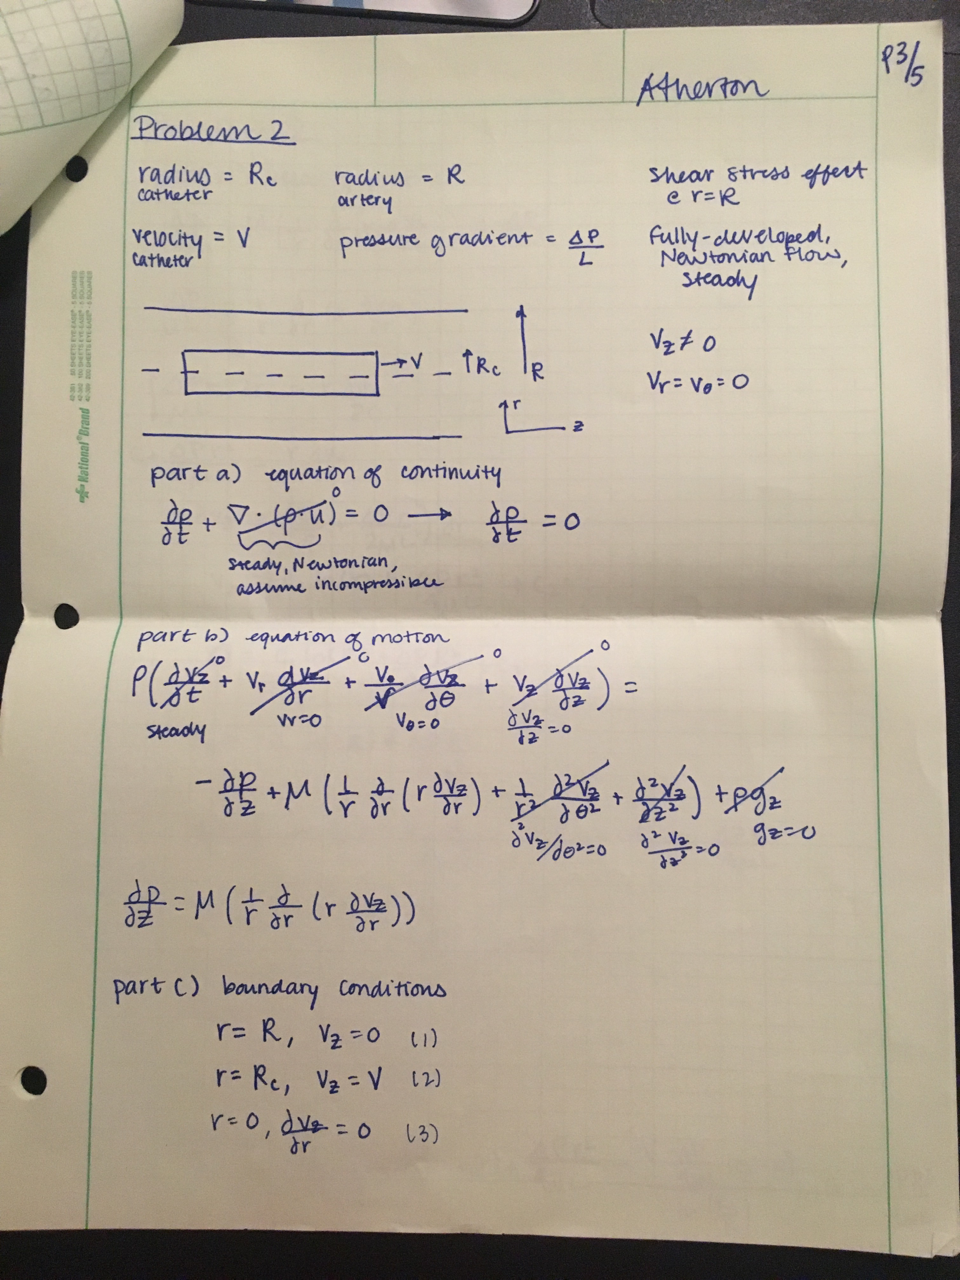 P3/5
Atherton
Problem 2
radius = Rc
catheter
radius = R
artery
Shear stress effect
@ r=R
velocity = V
catheter
pressure gradient = ΔP/L
fully-developed,
Newtonian flow,
steady
Vz ≠ 0
Vr = Vθ = 0
→ V
↑Rc
R
r
z
part a) equation of continuity
∂ρ/∂t + ∇·(ρ·u) 0 = 0 → ∂ρ/∂t = 0
steady, Newtonian,
assume incompressible
part b) equation of motion
ρ(∂Vz/∂t 0 + Vr ∂Vz/∂r 0 + Vθ/r ∂Vz/∂θ 0 + Vz ∂Vz/∂z 0) =
steady Vr=0 Vθ=0 ∂Vz/∂z=0
-∂p/∂z + μ(1/r ∂/∂r(r ∂Vz/∂r) + 1/r² ∂²Vz/∂θ² + ∂²Vz/∂z²) + ρgz
∂²Vz/∂θ²=0 ∂²Vz/∂z²=0 gz=0
∂p/∂z = μ(1/r ∂/∂r(r ∂Vz/∂r))
part c) boundary conditions
r= R, Vz=0 (1)
r= Rc, Vz = V (2)
r=0, ∂Vz/∂r = 0 (3)
National® Brand